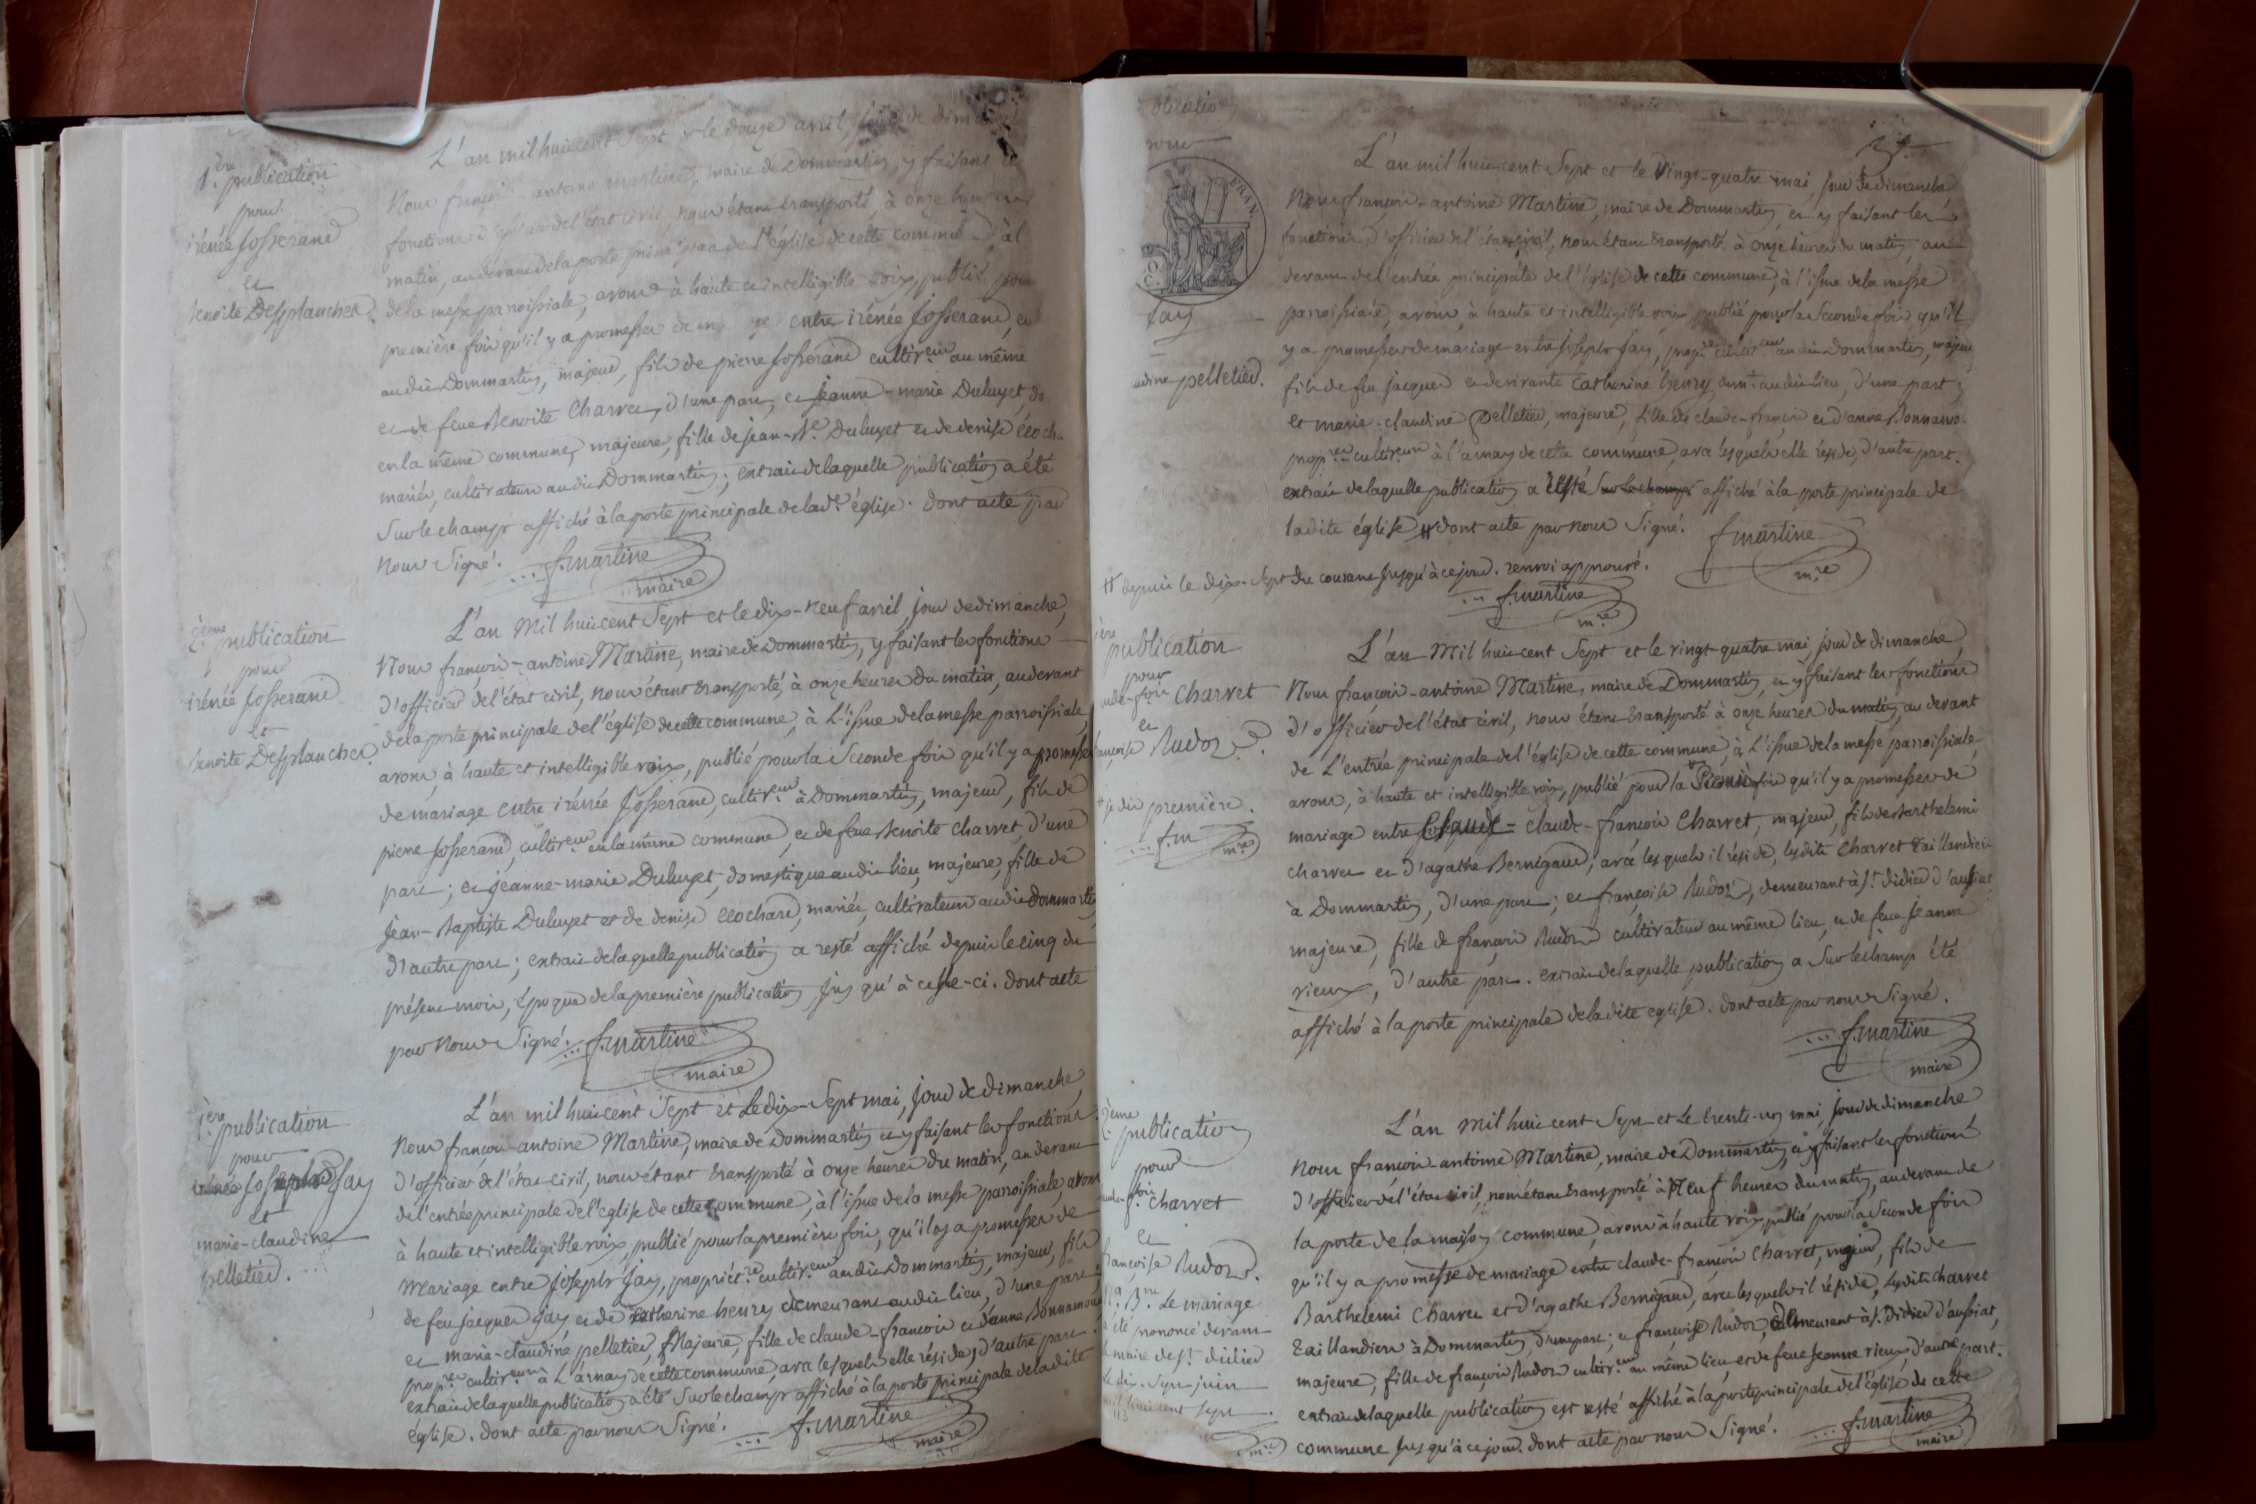 1.ère publication
pour
irénée Josserand
et
benoite Desplanches.
L'an mil huit cent Sept et le douze avril, jour de dimanche
Nous françois-antoine martine, maire de Dommartin, y faisant les
fonctions d'officier de l'état civil, nous étant transporté, à onze heures du
matin, au devant de la porte principale de l'église de cette commune, à l'
de la messe parroissiale, avons à haute et intelligible voix, publié pour
première fois qu'il y a promesses de entre irénée Josserand,
au dit Dommartin, majeur, fils de pierre Josserand cultiv.eur au même
et de feue Benoite Charvet, d'une part, et Jeanne-marie Duluyet, do
en la même commune, majeure, fille de jean-b.te Duluyet et de denise
mariés, cultivateurs au dit Dommartin; extrait de laquelle publication a été
Sur le champ affiché à la porte principale de lad.e église. dont acte par
Nous Signé. f. martine
maire
2.eme publication
pour
irénée Josserand
et
benoite Desplanches.
L'an Mil huit cent Sept et le dix-neuf avril, jour de dimanche,
Nous françois-antoine Martine, maire de Dommartin, y faisant les fonctions
d'officier de l'état civil, nous étant transporté, à onze heures du matin, au devant
de la porte principale de l'église de cette commune, à L'issue de la messe parroissiale,
avons, à haute et intelligible voix, publié pour la Seconde fois qu'il y a promesses
de mariage entre irénée Josserand, cultiv.eur à Dommartin, majeur, fils de
pierre Josserand, cultiv.eur en la même commune, et de feue Benoite Charvet, d'une
part; et jeanne-marie Duluyet, domestique au dit lieu, majeure, fille de
jean-Baptiste Duluyet et de denise, mariés, cultivateurs au dit Dommartin
d'autre part; extrait de laquelle publication a resté affiché depuis le cinq du
présent mois, époque de la première publication, jusqu'à celle-ci. dont acte
par Nous Signé. f. martine
maire
1.ère publication
pour
joseph Jay
et
marie-claudine
pelletier.
L'an mil huit cent Sept et Le dix-Sept mai, jour de dimanche,
Nous françois-antoine Martine, maire de Dommartin et y faisant les fonctions
d'officier de l'état civil, nous étant transporté à onze heures du matin, au devant
de l'entrée principale de l'eglise de cette commune, à l'issue de la messe parroissiale, avons
à haute et intelligible voix, publié pour la première fois, qu'il y a promesses de
Mariage entre Joseph Jay, propriét.re cultiv.eur au dit Dommartin, majeur, fils
de feu jacques Jay et de catherine henry demeurant au dit lieu, d'une part;
et marie-claudine pelletier, Majeure, fille de claude-françois et d'anne Bonnamour
prop.res cultiv.eurs à L'arnay de cette commune, avec lesquels elle réside, d'autre part.
extrait de laquelle publication a été Sur le champ affiché à la porte principale de ladite
église. dont acte par nous Signé. f. martine
maire
pour
FRAN
Jay
pelletier.
L'an mil huit cent Sept et le Vingt-quatre mai, jour de dimanche
Nous françois-antoine Martine, maire de Dommartin, et y faisant les
fonctions d'officier de l'état civil, nous étant transporté à onze heures du matin, au
devant de l'entrée principale de l'église de cette commune, à l'issue de la messe
parroissiale, avons, à haute et intelligible voix publié pour la Seconde fois qu'il
y a promesses de mariage entre Joseph Jay, prop.re cultiv.eur au dit Dommartin, majeur
fils de feu jacques et de vivante Catherine henry, dem.t au dit lieu, d'une part;
et marie-claudine Pelletier, majeure, fille de claude-françois et d'anne Bonnamo.
prop.res cultiv.eurs à l'arnay de cette commune, avec lesquels elle réside, d'autre part.
extrait de laquelle publication a resté sur le champ affiché à la porte principale de
ladite église # dont acte par nous Signé. f. martine
m.re
# depuis le dix-Sept du courant jusqu'à ce jour. renvoi approuvé.
f. martine
m.re
publication
pour
fois Charvet
et
françoise Rudoz.
je dis première.
f. m
m.re
L'an Mil huit cent Sept et le vingt-quatre mai, jour de dimanche,
Nous françois-antoine Martine, maire de Dommartin, et y faisant les fonctions
d'officier de l'état civil, nous étant transporté à onze heures du matin, au devant
de L'entrée principale de l'église de cette commune, à L'issue de la messe parroissiale
avons, à haute et intelligible voix, publié pour la Premiere fois qu'il y a promesses de
mariage entre claude-françois Charvet, majeur, fils de Barthelemi
Charvet et d'agathe Bernigaud, avec lesquels il réside, lesdits Charvet Taillandiers
à Dommartin, d'une part; et françoise Rudoz, demeurant à s.t didier d'aussiat
majeure, fille de françois Rudoz cultivateur au même lieu, et de feue jeanne
rieux, d'autre part. extrait de laquelle publication a Sur le champ été
affiché à la porte principale de ladite eglise. dont acte par nous Signé.
f. martine
maire
2.eme publication
pour
f.ois charvet
et
françoise Rudoz.
Le mariage
a été prononcé devant
le maire de s.t didier
Le dix-Sept juin
mil huit cent sept
m.re
L'an Mil huit cent Sept et Le trente-un mai, jour de dimanche
Nous françois-antoine Martine, maire de Dommartin, et y faisant les fonctions
d'officier de l'état civil, nous étant transporté à Neuf heures du matin, au devant de
la porte de la maison commune, avons à haute voix publié pour la Seconde fois
qu'il y a promesse de mariage entre claude-françois Charvet, majeur, fils de
Barthelemi Charvet et d'agathe Bernigaud, avec lesquels il réside, Lesdits charvet
Taillandiers à Dommartin, d'une part; et françoise Rudoz, demeurant à s.t Didier d'aussiat,
majeure, fille de françois Rudoz cultiv.eur au même lieu, et de feue Jeanne rieux, d'autre part.
extrait de laquelle publication est resté affiché à la porte principale de l'église de cette
commune jusqu'à ce jour. dont acte par nous Signé. f. martine
maire